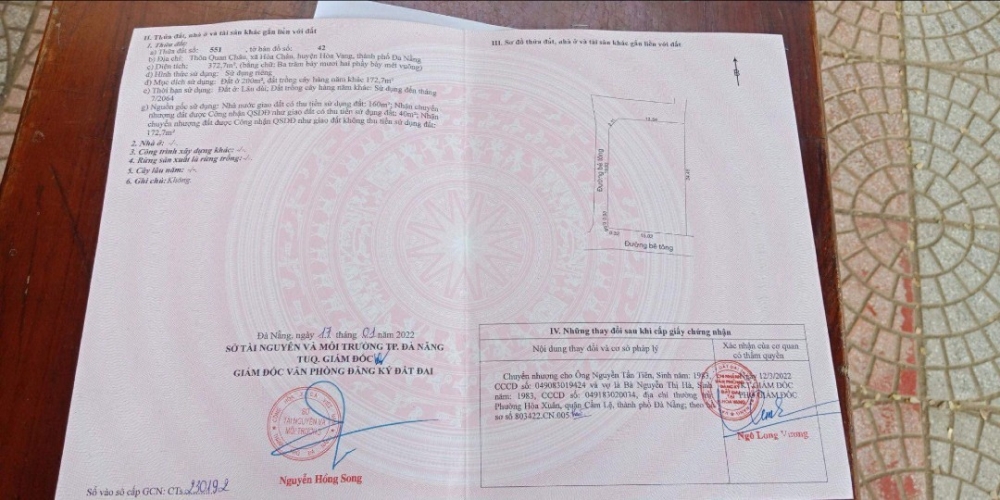 II. Thửa đất, nhà ở và tài sản khác gắn liền với đất
1. Thửa đất:
a) Thửa đất số: 551 , tờ bản đồ số: 42
b) Địa chỉ: Thôn Quan Châu, xã Hòa Châu, huyện Hòa Vang, thành phố Đà Nẵng
c) Diện tích: 372,7m², (bằng chữ: Ba trăm bảy mươi hai phẩy bảy mét vuông)
d) Hình thức sử dụng: Sử dụng riêng
đ) Mục đích sử dụng: Đất ở 200m², đất trồng cây hàng năm khác 172,7m²
e) Thời hạn sử dụng: Đất ở: Lâu dài; Đất trồng cây hàng năm khác: Sử dụng đến tháng
7/2064
g) Nguồn gốc sử dụng: Nhà nước giao đất có thu tiền sử dụng đất: 160m²; Nhận chuyển
nhượng đất được Công nhận QSDĐ như giao đất có thu tiền sử dụng đất: 40m²; Nhận
chuyển nhượng đất được Công nhận QSDĐ như giao đất không thu tiền sử dụng đất:
172,7m²
2. Nhà ở: -/-
3. Công trình xây dựng khác: -/-
4. Rừng sản xuất là rừng trồng: -/-
5. Cây lâu năm: -/-
6. Ghi chú: Không
Đà Nẵng, ngày 17 tháng 01 năm 2022
SỞ TÀI NGUYÊN VÀ MÔI TRƯỜNG TP. ĐÀ NẴNG
TUQ. GIÁM ĐỐC
GIÁM ĐỐC VĂN PHÒNG ĐĂNG KÝ ĐẤT ĐAI
SỞ
TÀI NGUYÊN VÀ
MÔI TRƯỜNG
Nguyễn Hồng Song
Số vào sổ cấp GCN: CTs 230192
III. Sơ đồ thửa đất, nhà ở và tài sản khác gắn liền với đất
B
Đường bê tông
Đường bê tông
IV. Những thay đổi sau khi cấp giấy chứng nhận
Nội dung thay đổi và cơ sở pháp lý
Xác nhận của cơ quan
có thẩm quyền
Chuyển nhượng cho Ông Nguyễn Tấn Tiên, Sinh năm: 1983,
CCCD số: 049083019424 và vợ là Bà Nguyễn Thị Hà, Sinh
năm: 1983, CCCD số: 049183020034, địa chỉ thường trú
Phường Hòa Xuân, quận Cẩm Lệ, thành phố Đà Nẵng; theo hồ
sơ số 803422.CN.005
Ngày 12/3/2022
GIÁM ĐỐC
PHÓ GIÁM ĐỐC
Ngô Long Vương